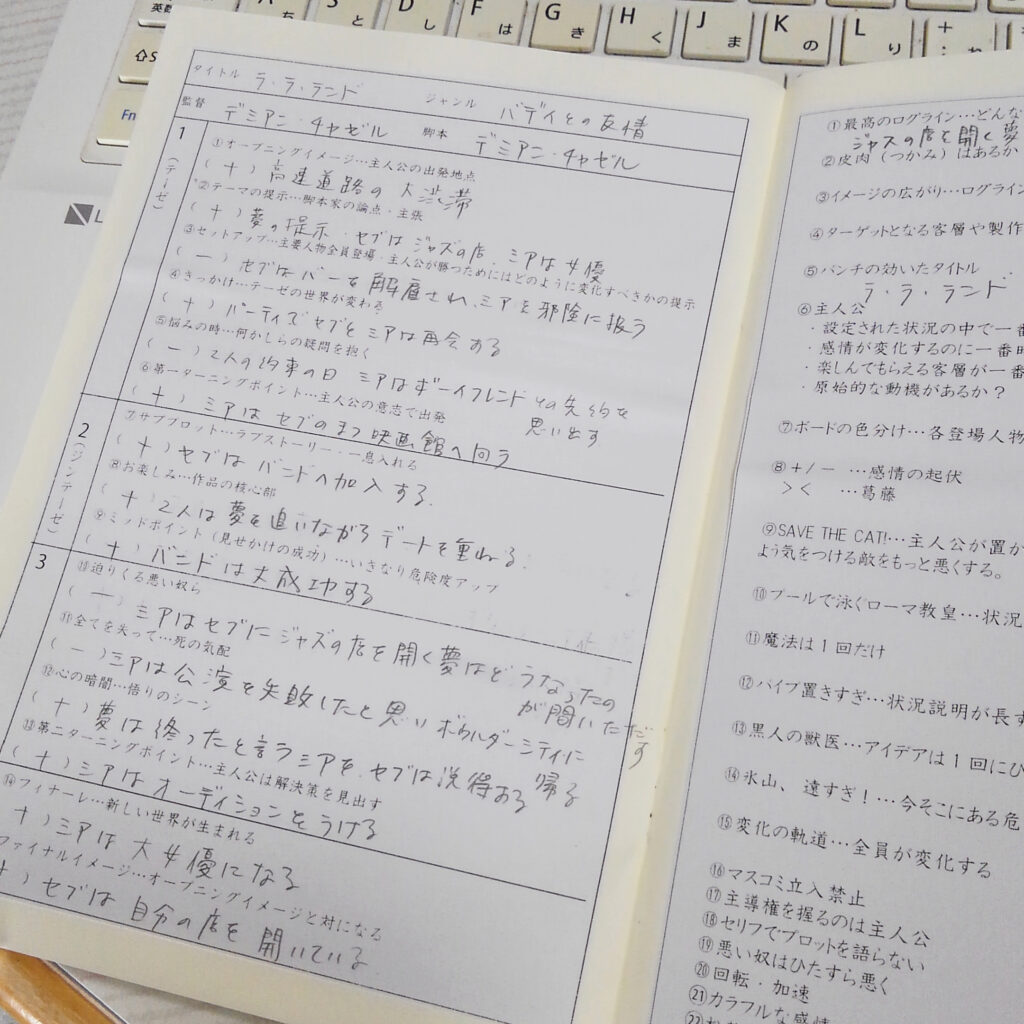 英数
ち
S
と
D
し
F
は
G
き
H
く
J
ま
K
の
L
り
+
;
れ
⇧S
Fn
タイトル ラ・ラ・ランド ジャンル バディとの友情
監督 デミアン・チャゼル 脚本 デミアン・チャゼル
1
(テーゼ)
①オープニングイメージ…主人公の出発地点
(+) 高速道路の大渋滞
②テーマの提示…脚本家の論点・主張
(+) 夢の提示・セブはジャズの店、ミアは女優
③セットアップ…主要人物全員登場・主人公が勝つためにはどのように変化すべきかの提示
(ー) セブはバーを解雇され、ミアを邪険に扱う
④きっかけ…テーゼの世界が変わる
(+) パーティでセブとミアは再会する
⑤悩みの時…何かしらの疑問を抱く
(ー) 2人の約束の日 ミアはボーイフレンドとの先約を
思い出す
⑥第一ターニングポイント…主人公の意志で出発
(+) ミアはセブのまつ映画館へ向う
2
(ジンテーゼ)
⑦サブプロット…ラブストーリー・一息入れる
(+) セブはバンドへ加入する.
⑧お楽しみ…作品の核心部
(+) 2人は夢を追いながらデートを重ねる.
⑨ミッドポイント(見せかけの成功)…いきなり危険度アップ
(+) バンドは大成功する
3
⑩迫りくる悪い奴ら
(ー) ミアはセブにジャズの店を開く夢はどうなったの
か聞いただす
⑪全てを失って…死の気配
(ー) ミアは公演を失敗したと思いボウルダーシティに
帰る
⑫心の暗闇…悟りのシーン
(+) 夢は終ったと言うミアを、セブは説得する
⑬第二ターニングポイント…主人公は解決策を見出す
(+) ミアはオーディションをうける
⑭フィナーレ…新しい世界が生まれる
+) ミアは大女優になる
ファイナルイメージ…オープニングイメージと対になる
+) セブは自分の店を開いている
①最高のログライン…どんな
ジャズの店を開く夢
②皮肉(つかみ)はあるか
③イメージの広がり…ログライン
④ターゲットとなる客層や製作
⑤パンチの効いたタイトル
ラ・ラ・ランド
⑥主人公
・設定された状況の中で一番
・感情が変化するのに一番時
・楽しんでもらえる客層が一番
・原始的な動機があるか?
⑦ボードの色分け…各登場人物
⑧+/ー …感情の起伏
>< …葛藤
⑨SAVE THE CAT!…主人公が置か
よう気をつける敵をもっと悪くする。
⑩プールで泳ぐローマ教皇…状況
⑪魔法は1回だけ
⑫パイプ置きすぎ…状況説明が長す
⑬黒人の獣医…アイデアは1回にひ
⑭氷山、遠すぎ!…今そこにある危
⑮変化の軌道…全員が変化する
⑯マスコミ立入禁止
⑰主導権を握るのは主人公
⑱セリフでプロットを語らない
⑲悪い奴はひたすら悪く
⑳回転・加速
㉑カラフルな感情